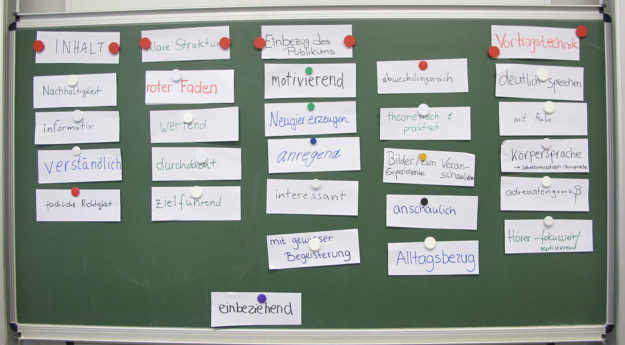 INHALT
Klare Struktur
Einbezug des
Publikums
Vortragstechnik
Nachhaltigkeit
informativ
verständlich
fachliche Richtigkeit
roter Faden
wertend
durchdacht
zielführend
motivierend
Neugier erzeugen
anregend
interessant
mit gewisser
Begeisterung
einbeziehend
abwechslungsreich
theoretisch &
praktisch
Bilder/zum Veran-
Experimente schaulichen
anschaulich
Alltagsbezug
deutlich sprechen
mit Ruhe
Körpersprache
adressatengemäß
Hörer-fokussiert/
motivierend